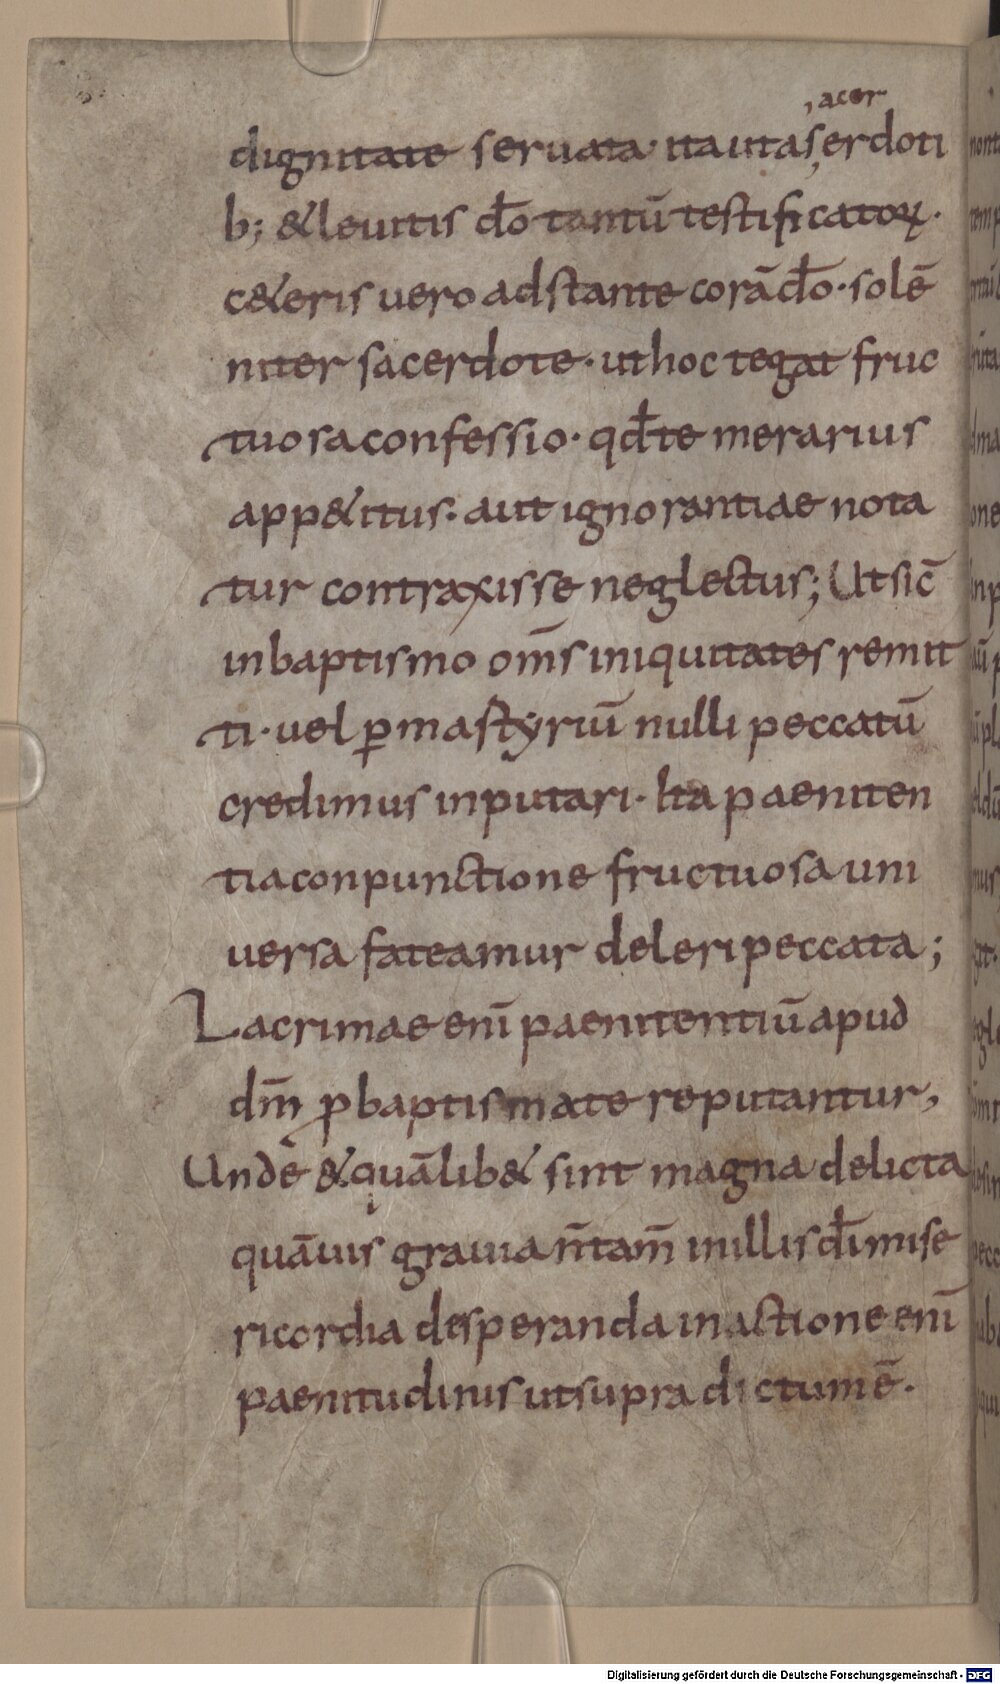 ,acer
dignitate seruata· ita uta serdoti
b; &leuitis dō tantū testificatoꝝ·
c&eris uero adstante corā dō· solē
niter sacerdote· ut hoc tegat fruc
tuosa confessio· qđ te merarius
app&itus· aut ignorantiae nota
tur contraxisse neglectus; Ut sic̄
in baptismo om̄s iniquitates remit
ti· uel ꝑ mastyriū nulli peccatū
credimus inputari· Ita paeniten
tia conpunctione fructuosa uni
uersa fateamur deleri peccata;
Lacrimae eni̅ paenitentiū apud
dm̄ ꝓ baptismate reputantur,
Unde & quālib& sint magna delicta
quāuis grauia n̄ tam̄ in illis dī mise
ricordia desperanda in actione eni̅
paenitudinis ut supra dictum ē·
Digitalisierung gefördert durch die Deutsche Forschungsgemeinschaft - DFG